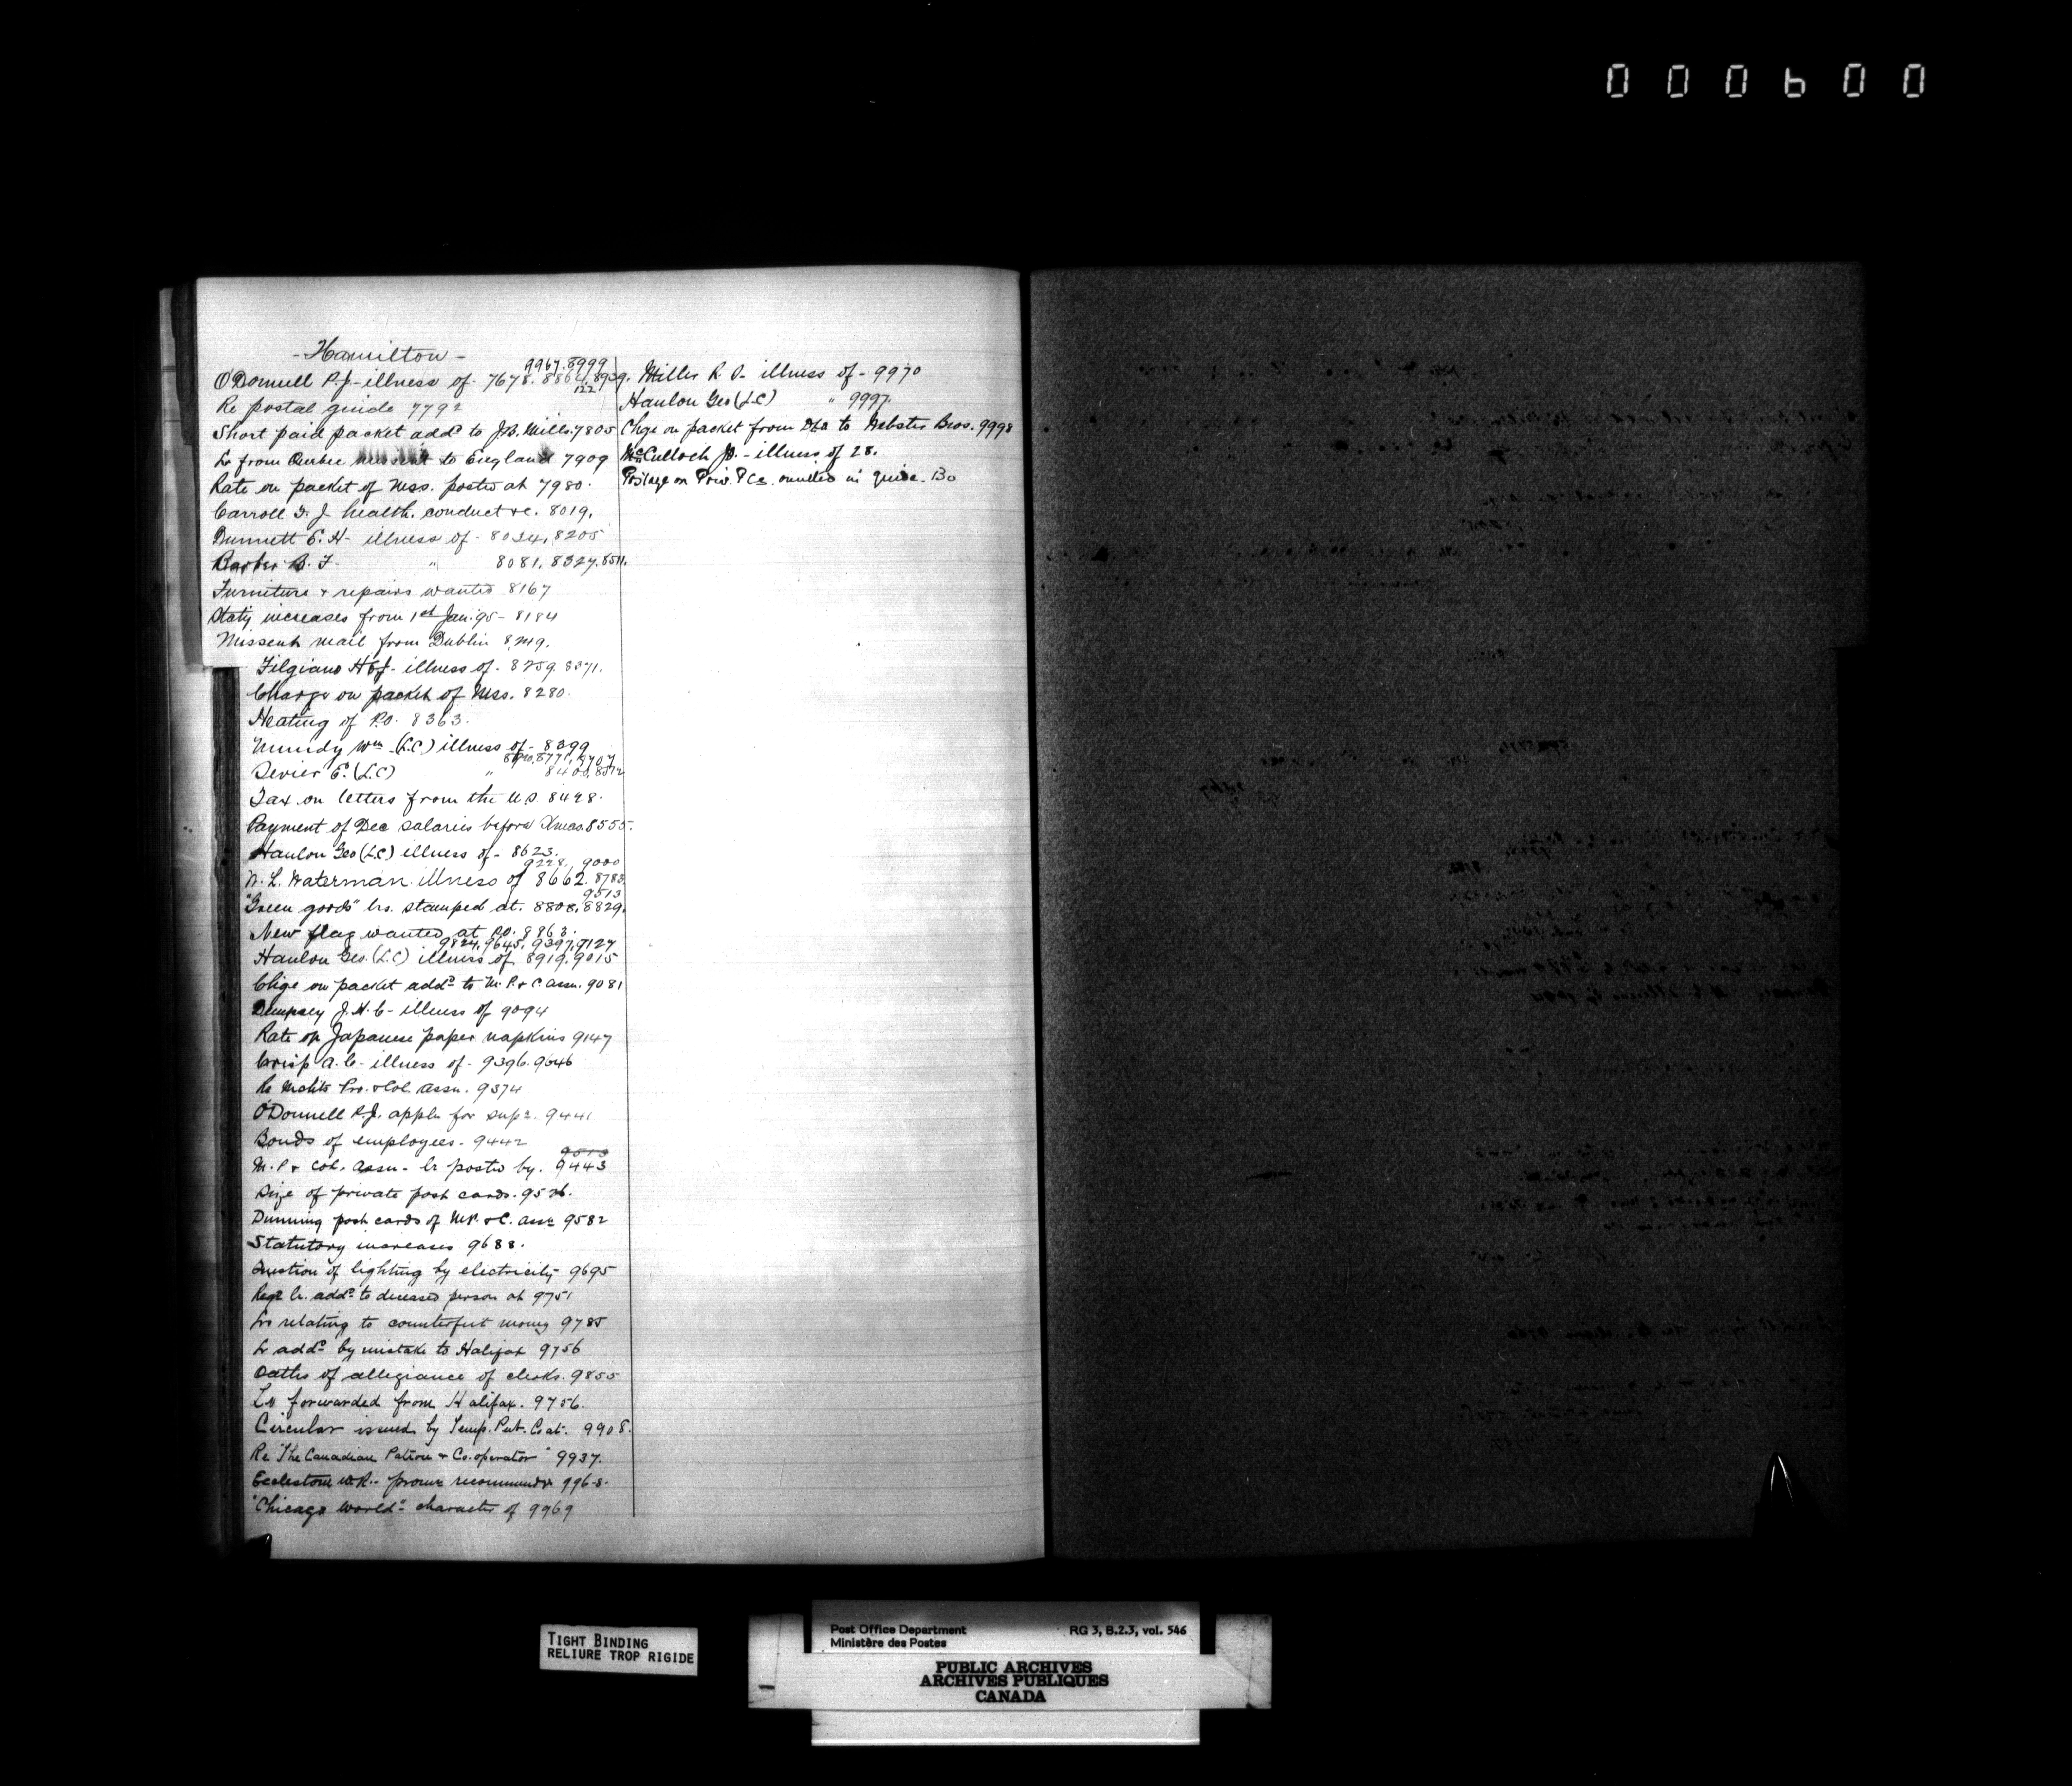 000600
- Hamilton -
9967. 8999
O'Donnell P.J. - illness of - 7678. 8864. 8939.
122
Re postal guide 7792
Short paid packet addd to J.B. Mills. 7805
Lr from Quebec missent to England 7909
Rate on packet of Mss. posted at 7980.
Carroll J. health. conduct &c. 8019.
Dunnett E. H - illness of - 8034, 8205
Barber B. F. " 8081. 8327. 8511.
Furniture & repairs wanted 8167
Staty increases from 1st Jan. 95 - 8184
Missent mail from Dublin 8249.
Filgiano H - illness of - 8259. 8371.
Charge on packet of Mss. 8280.
Heating of P.O. 8363.
Mundy Wm (L.C) illness of - 8399
8771, 9707
Sevier E. (L.C) " 8400, 8512
Tax on letters from the U.S. 8428.
Payment of Dec salaries before Xmas. 8555.
Hanlon Geo (L.C) illness of - 8623.
9228, 9000
W. L. Waterman illness of 8662. 8783.
9513
"Green goods" lrs. stamped at. 8808, 8829.
New flag wanted at P.O. 8863.
9824, 9645, 9397, 9127
Hanlon Geo. (L.C) illness of 8919, 9015
Chge on packet addd to M. P. & C. Assn. 9081
Dempsey J. H. C - illness of 9094
Rate on Japanese paper napkins 9147
Crisp A. C - illness of - 9396. 9646
Re Mchts Pro. & Col. Assn. 9374
O'Donnell P.J. appln for supn. 9441
Bonds of employees - 9442
9513
M. P & Col. Assn - lr posted by. 9443
Size of private post cards. 9526.
Dunning post cards of M.P. & C. Assn 9582
Statutory increases 9688.
Question of lighting by electricity 9695
Regd lr. addd to deceased person at 9751
Lrs relating to counterfeit money 9785
Lr addd by mistake to Halifax 9756
Oaths of allegiance of clerks. 9855
Lr forwarded from Halifax. 9756.
Circular issued by Temp. Pub. Co at. 9908.
Re "The Canadian Patron & Co. operator" 9937.
Ecclestone W.R. - promn recommended 9968.
"Chicago World" - character of 9969
Miller R. S. illness of - 9970
Hanlon Geo (L.C) " 9997.
Chge on packet from to Webster Bros. 9998
McCulloch J. - illness of 28.
Postage on Priv. P Cs. omitted in guide. 130
TIGHT BINDING
RELIURE TROP RIGIDE
Post Office Department RG 3, B.2.3, vol. 546
Ministère des Postes
PUBLIC ARCHIVES
ARCHIVES PUBLIQUES
CANADA